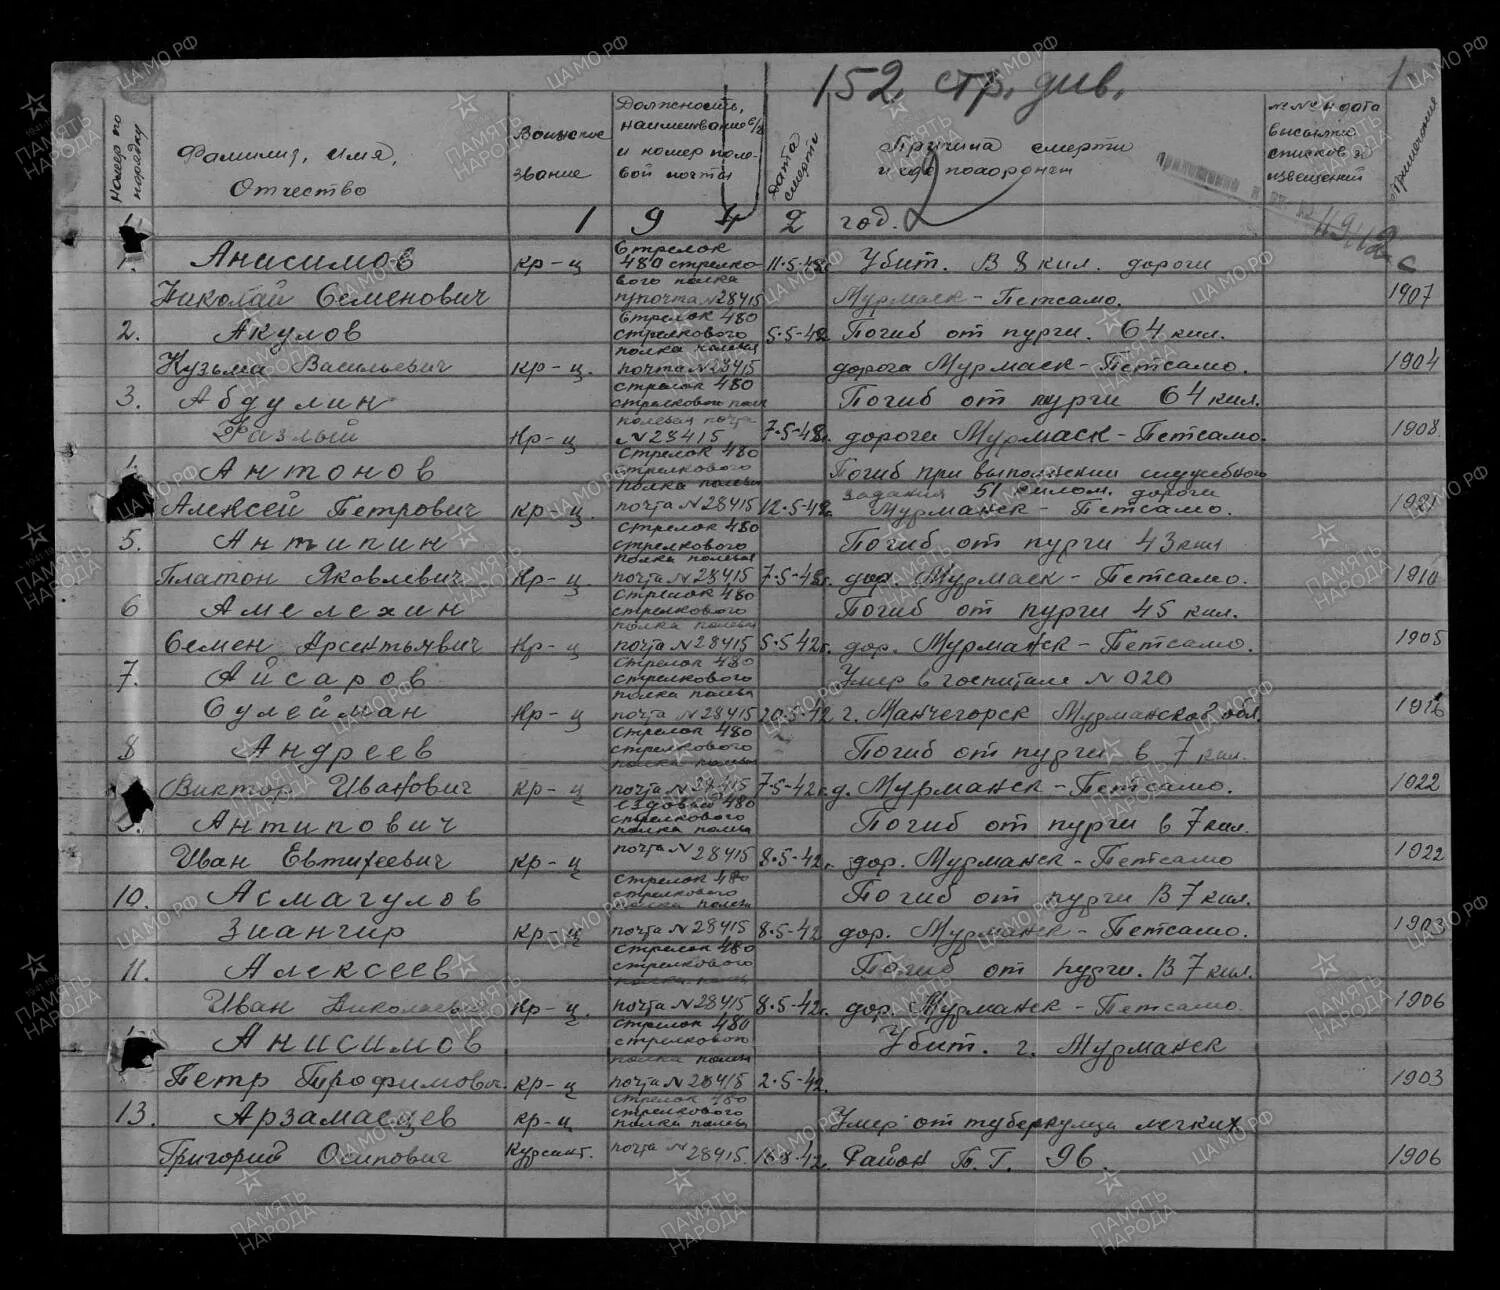 152. стр. див.
1
Номер по порядку
Фамилия, имя,
Отчество
Воинское
звание
Должность,
наименование в/ч
и номер поле-
вой почты
Дата смерти
Причина смерти
и где похоронен
№№ и дата
высылки
списков и
извещений
Примечание
1942 год.
1. Анисимов кр-ц Стрелок
480 стрелко-
вого полка 11.5.42г Убит. В 8 кил. дороги
Николай Семенович п/почта №28415 Мурманск-Петсамо. 1907
2. Акулов Стрелок 480
стрелкового 5.5-42г. Погиб от пурги. 64 кил.
полка полевая
Кузьма Васильевич кр-ц. почта №28415 дорога Мурманск-Петсамо. 1904
3. Абдулин стрелок 480
стрелковый полк Погиб от пурги 64 кил.
полевая почта
Фазлый кр-ц №28415 7.5-42г. дороги Мурманск-Петсамо. 1908
Антонов Стрелок 480
стрелкового Погиб при выполнении служебного
полка полевая задания 51 килом. дороги
Алексей Петрович кр-ц. почта №28415 12.5-42г. Мурманск-Петсамо.
5. Антипин Стрелок 480
стрелкового Погиб от пурги 43 кил
полка полевая
Платон Яковлевич кр-ц. почта №28415 7.5-42г. дор. Мурманск-Петсамо. 1910
6 Амелехин Стрелок 480
стрелкового Погиб от пурги 45 кил.
полка полевая
Семен Арсентьевич кр-ц почта №28415 5.5-42г. дор. Мурманск-Петсамо. 1905
7. Айсаров Стрелок 480
стрелкового Умер в госпитале №1020
полка полевая
Сулейман кр-ц почта №28415 20.5-42 г. Манчегорск Мурманской обл.
8 Андреев Стрелок 480
стрелкового Погиб от пурги в 7 кил.
полка полевая
Виктор Иванович кр-ц почта №28415 7.5-42г. д. Мурманск-Петсамо. 1922
9. Антипович ездовый 480
стрелкового Погиб от пурги в 7 кил.
полка полевая
Иван Евтихеевич кр-ц почта №28415 8.5-42г. дор. Мурманск-Петсамо 1922
10. Асмагулов стрелок 480
стрелкового Погиб от пурги В 7 кил.
полка полевая
Зиангир кр-ц почта №28415 8.5-42 дор. Мурманск-Петсамо. 1903
11. Алексеев стрелок 480
стрелкового Погиб от пурги. В 7 кил.
Иван Николаевич кр-ц. почта №28415 8.5-42г. дор. Мурманск-Петсамо 1906
Анисимов стрелок 480
стрелкового Убит. г. Мурманск
полка полевая
Петр Трофимович кр-ц почта №28415 2.5-42. 1903
13. Арзамасцев стрелок 480
стрелкового
кр-ц полка полевая Умер от туберкулеза легких
Григорий Осипович Курсант. почта №28415. 18.8-42. Район П.Г. 96. 1906
ЦАМО.РФ
ПАМЯТЬ НАРОДА